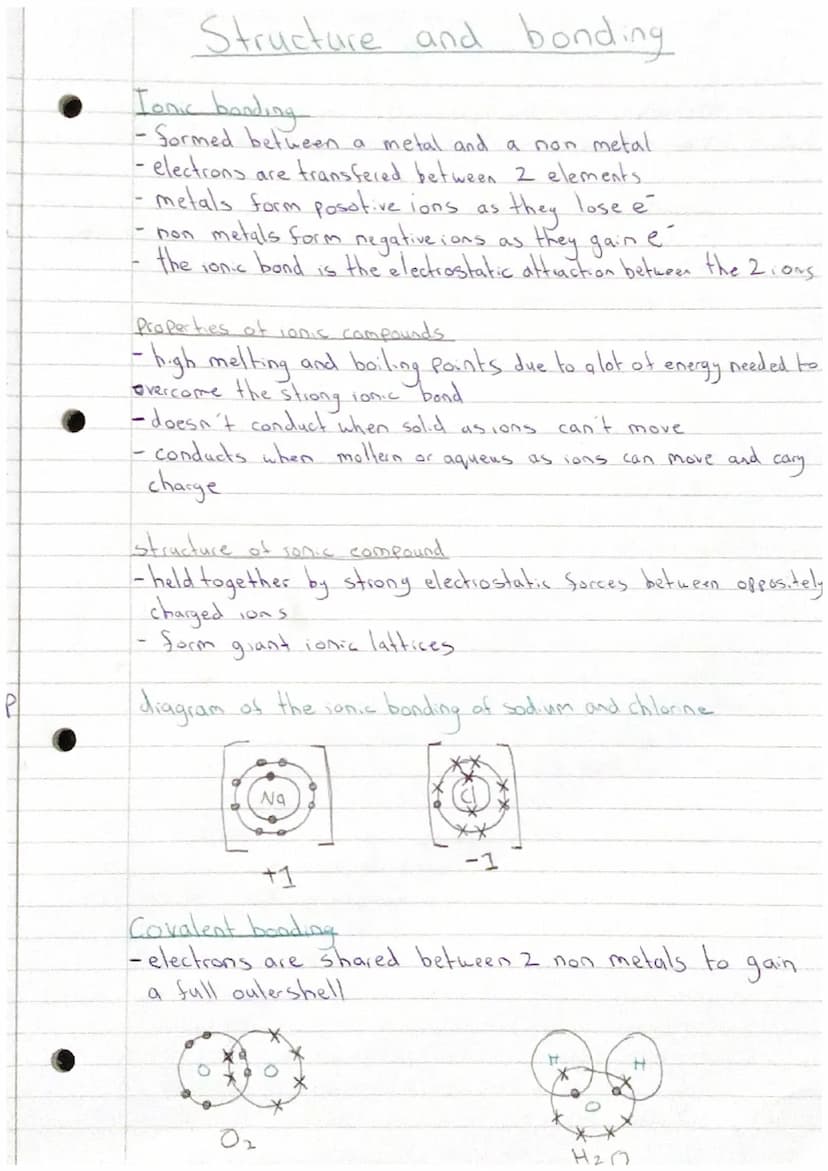 Structure and bonding
Ionic bonding
- formed between a metal and a non metal
- electrons are transfered between 2 elements
- metals form posotive ions as they lose e⁻
- non metals form negative ions as they gain e⁻
- the ionic bond is the electrostatic attraction between the 2 ions
properties of ionic compounds
- high melting and boiling points due to a lot of energy needed to
overcome the strong ionic bond
- doesn't conduct when solid as ions can't move
- conducts when moltern or aqueus as ions can move and cary
charge
structure of ionic compound
- held together by strong electrostatic forces between oppositely
charged ions
- form giant ionic lattices
P
diagram of the ionic bonding of sodium and chlorine
Na Cl
+1 -1
Covalent bonding
- electrons are shared between 2 non metals to gain
a full outershell
O O H H
O
O₂ H₂O